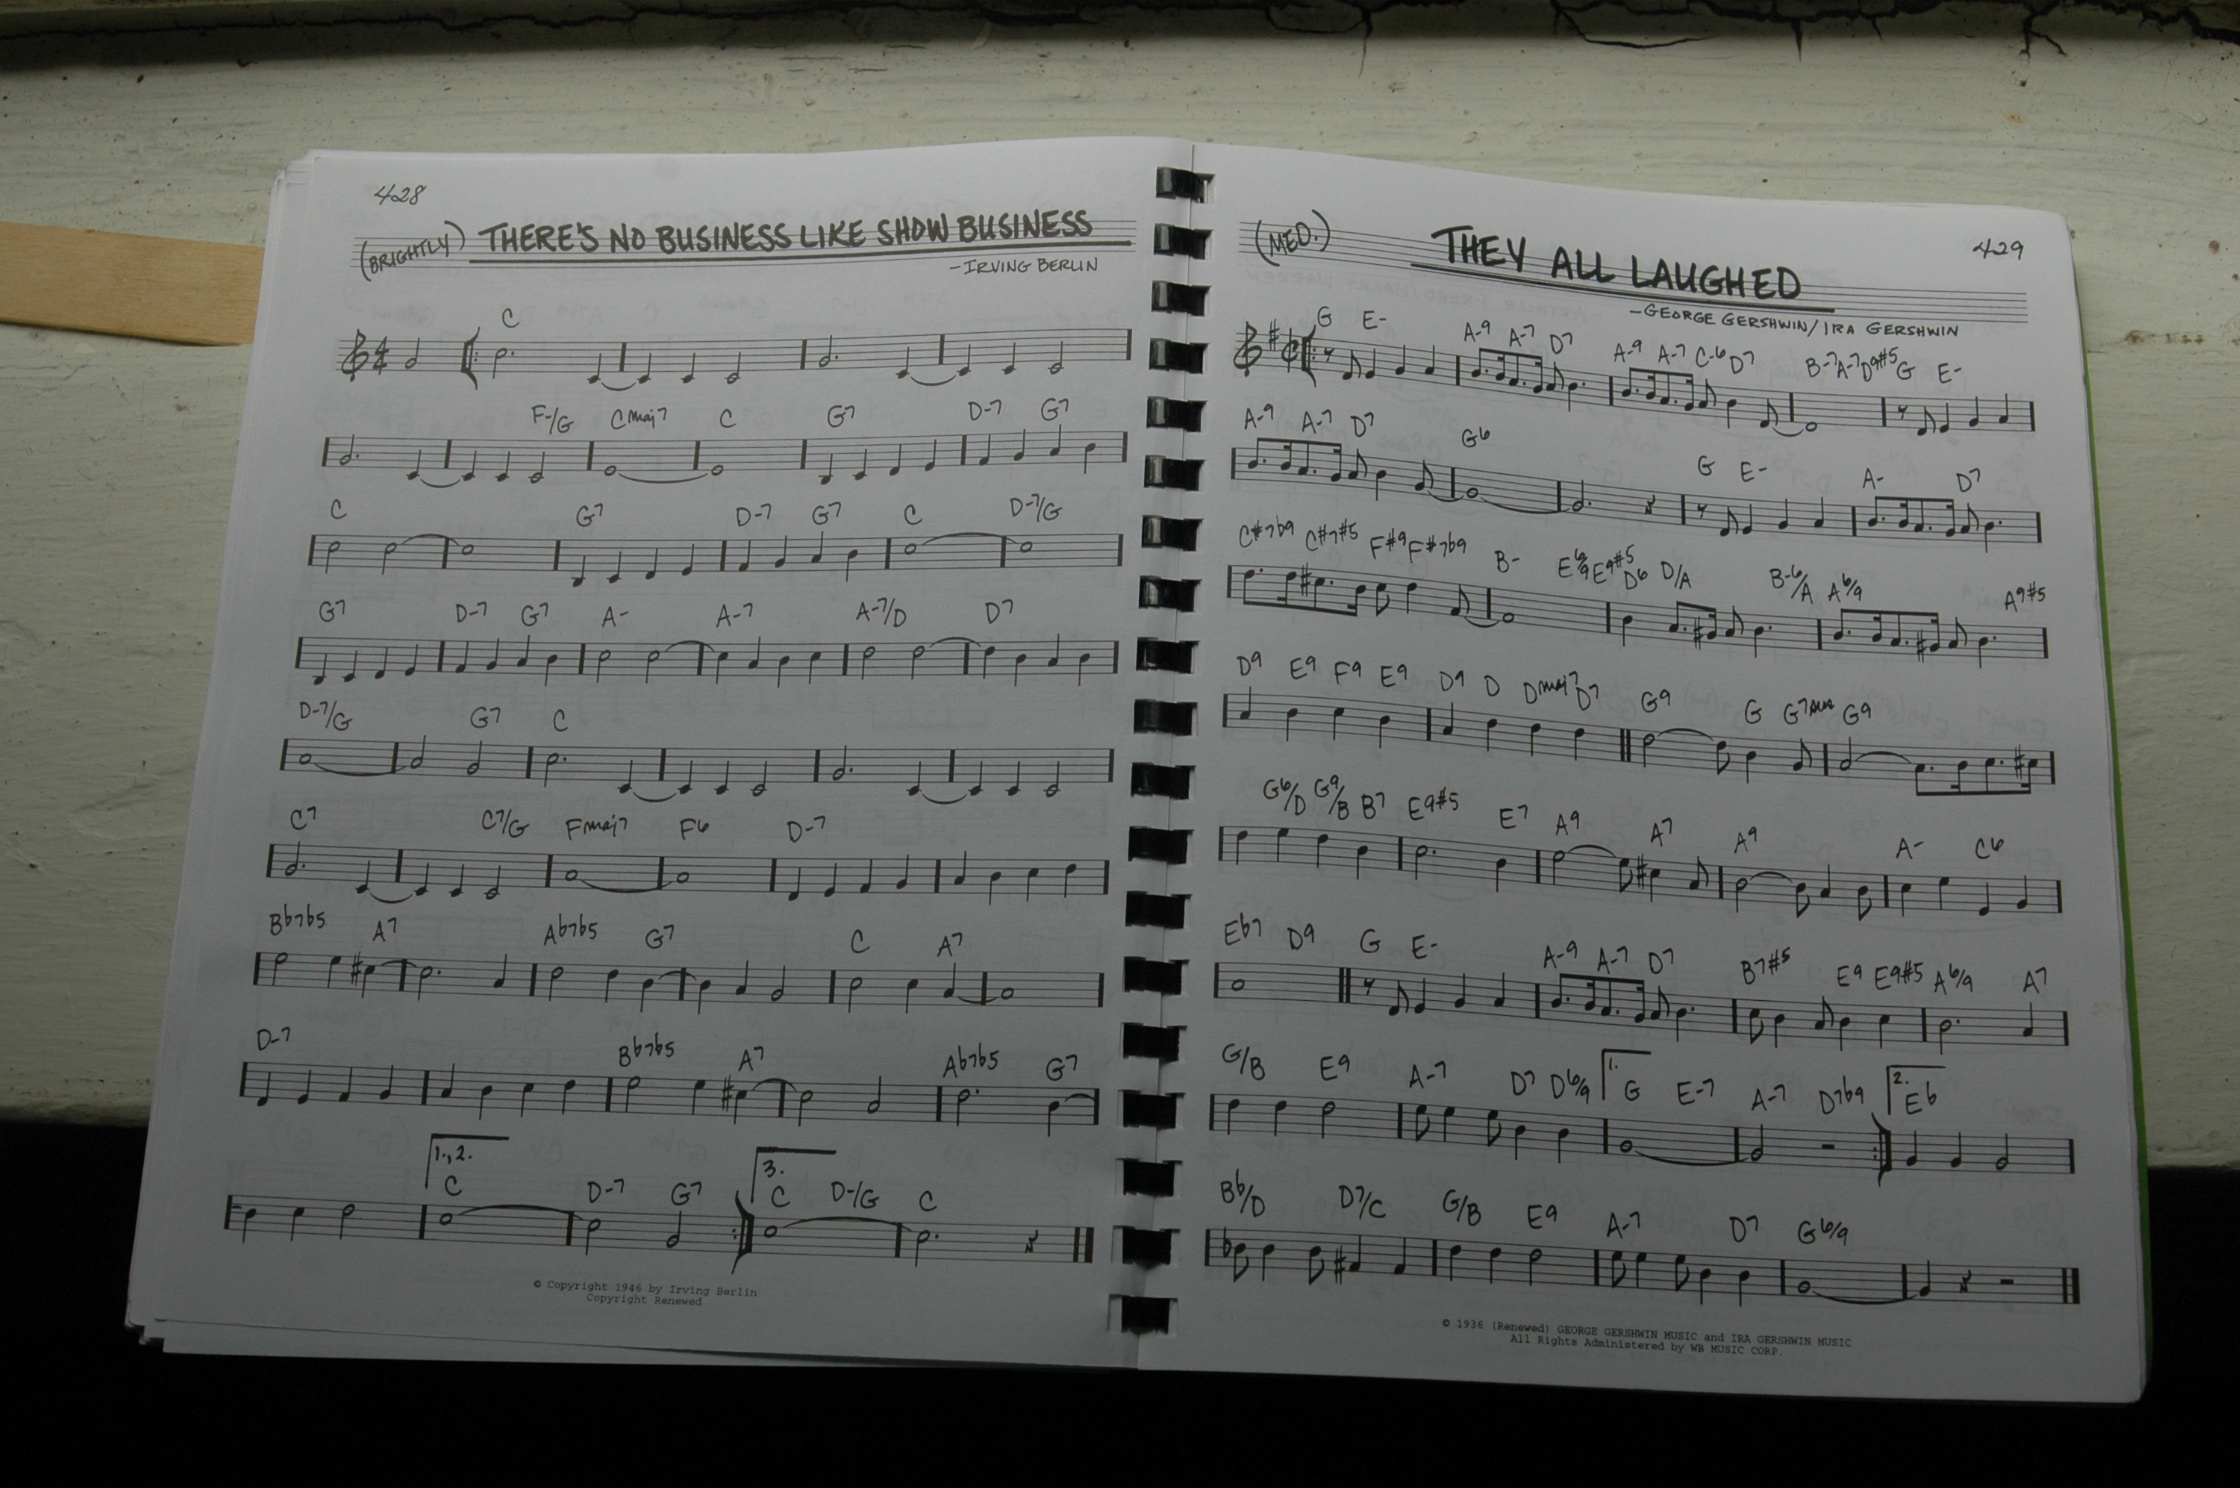 428
(BRIGHTLY) THERE'S NO BUSINESS LIKE SHOW BUSINESS
-IRVING BERLIN
C
F-/G Cmaj7 C G7 D-7 G7
C G7 D-7 G7 C D-7/G
G7 D-7 G7 A- A-7 A-7/D D7
D-7/G G7 C
C7 C7/G Fmaj7 F6 D-7
Bb7b5 A7 Ab7b5 G7 C A7
D-7 Bb7b5 A7 Ab7b5 G7
1.,2. 3.
C D-7 G7 C D-/G C
© Copyright 1946 by Irving Berlin
Copyright Renewed
429
(MED.) THEY ALL LAUGHED
-GEORGE GERSHWIN/IRA GERSHWIN
G E- A-9 A-7 D7 A-9 A-7 C-6 D7 B-7 A-7 D9#5 G E-
A-9 A-7 D7 G6 G E- A- D7
C#7b9 C#7#5 F#9 F#7b9 B- E6/9 E9#5 D6 D/A B-6/A A6/9 A9#5
D9 E9 F9 E9 D9 D Dmaj7 D7 G9 G G9
G6/D G9/B B7 E9#5 E7 A9 A7 A9 A- C6
Eb7 D9 G E- A-9 A-7 D7 B7#5 E9 E9#5 A6/9 A7
G/B E9 A-7 D7 D6/9 1. G E-7 A-7 D7b9 2. Eb
Bb/D D7/C G/B E9 A-7 D7 G6/9
© 1936 (Renewed) GEORGE GERSHWIN MUSIC and IRA GERSHWIN MUSIC
All Rights Administered by WB MUSIC CORP.